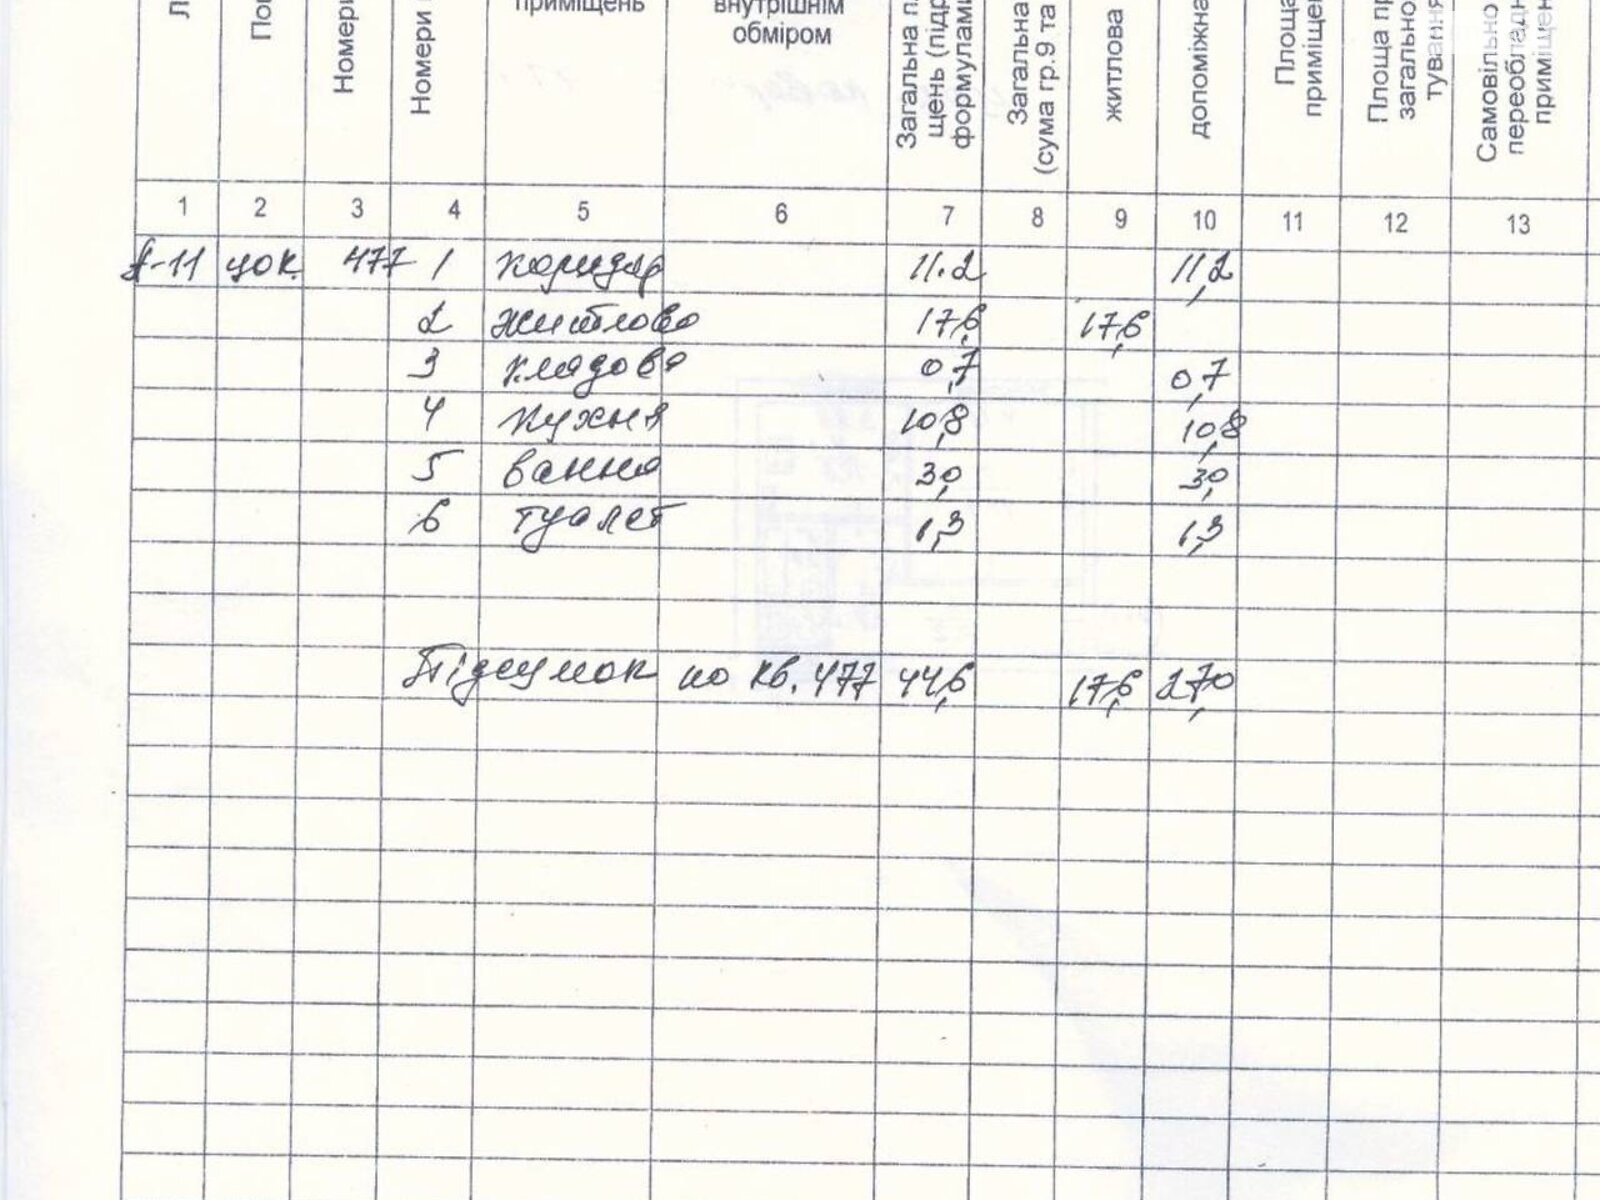 приміщень
внутрішнім
обміром
Номери
Номери
Загальна
щень (підр
формулами
Загальна
(сума гр.9 та
житлова
допоміжна
Площа
приміщен
Площа пр
загально
тування
Самовільно
переобладн
приміщен
1 2 3 4 5 6 7 8 9 10 11 12 13
-11 цок. 477 1 коридор 11.2 11,2
2 житлова 17,6 17,6
3 кладова 0,7 0,7
4 кухня 10,8 10,8
5 ванна 3,0 3,0
6 туалет 1,3 1,3
Підсумок по кв. 477 44,6 17,6 27,0